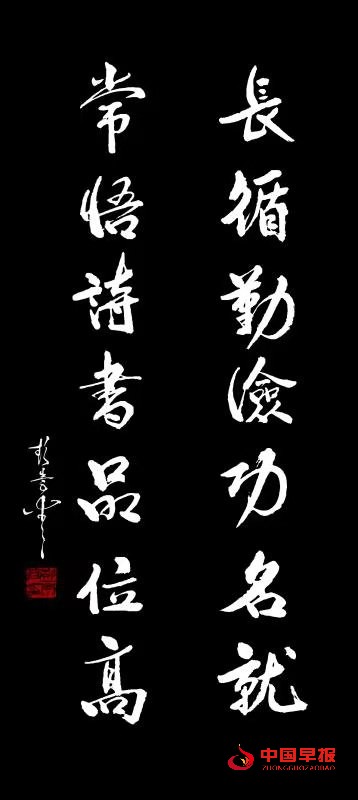 長循勤儉功名就
常悟詩書品位高
中国早报
ZHONGGUOZAOBAO